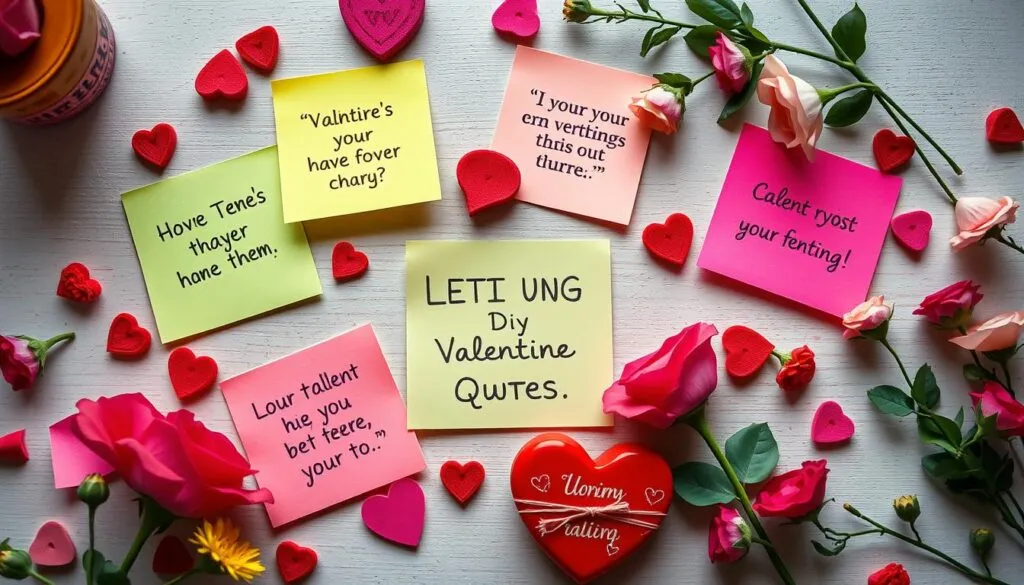 "Valntire's
your
have fover
chary?
"I your your
ern verttings
this out
tlurre:."
Hovie Tene's
thayer
hane them.
Calent ryost
your fenting!
LETI UNG
Diy
Valentine
Qwtes.
Lour tallent
hie, you
bet teere,
your to.."